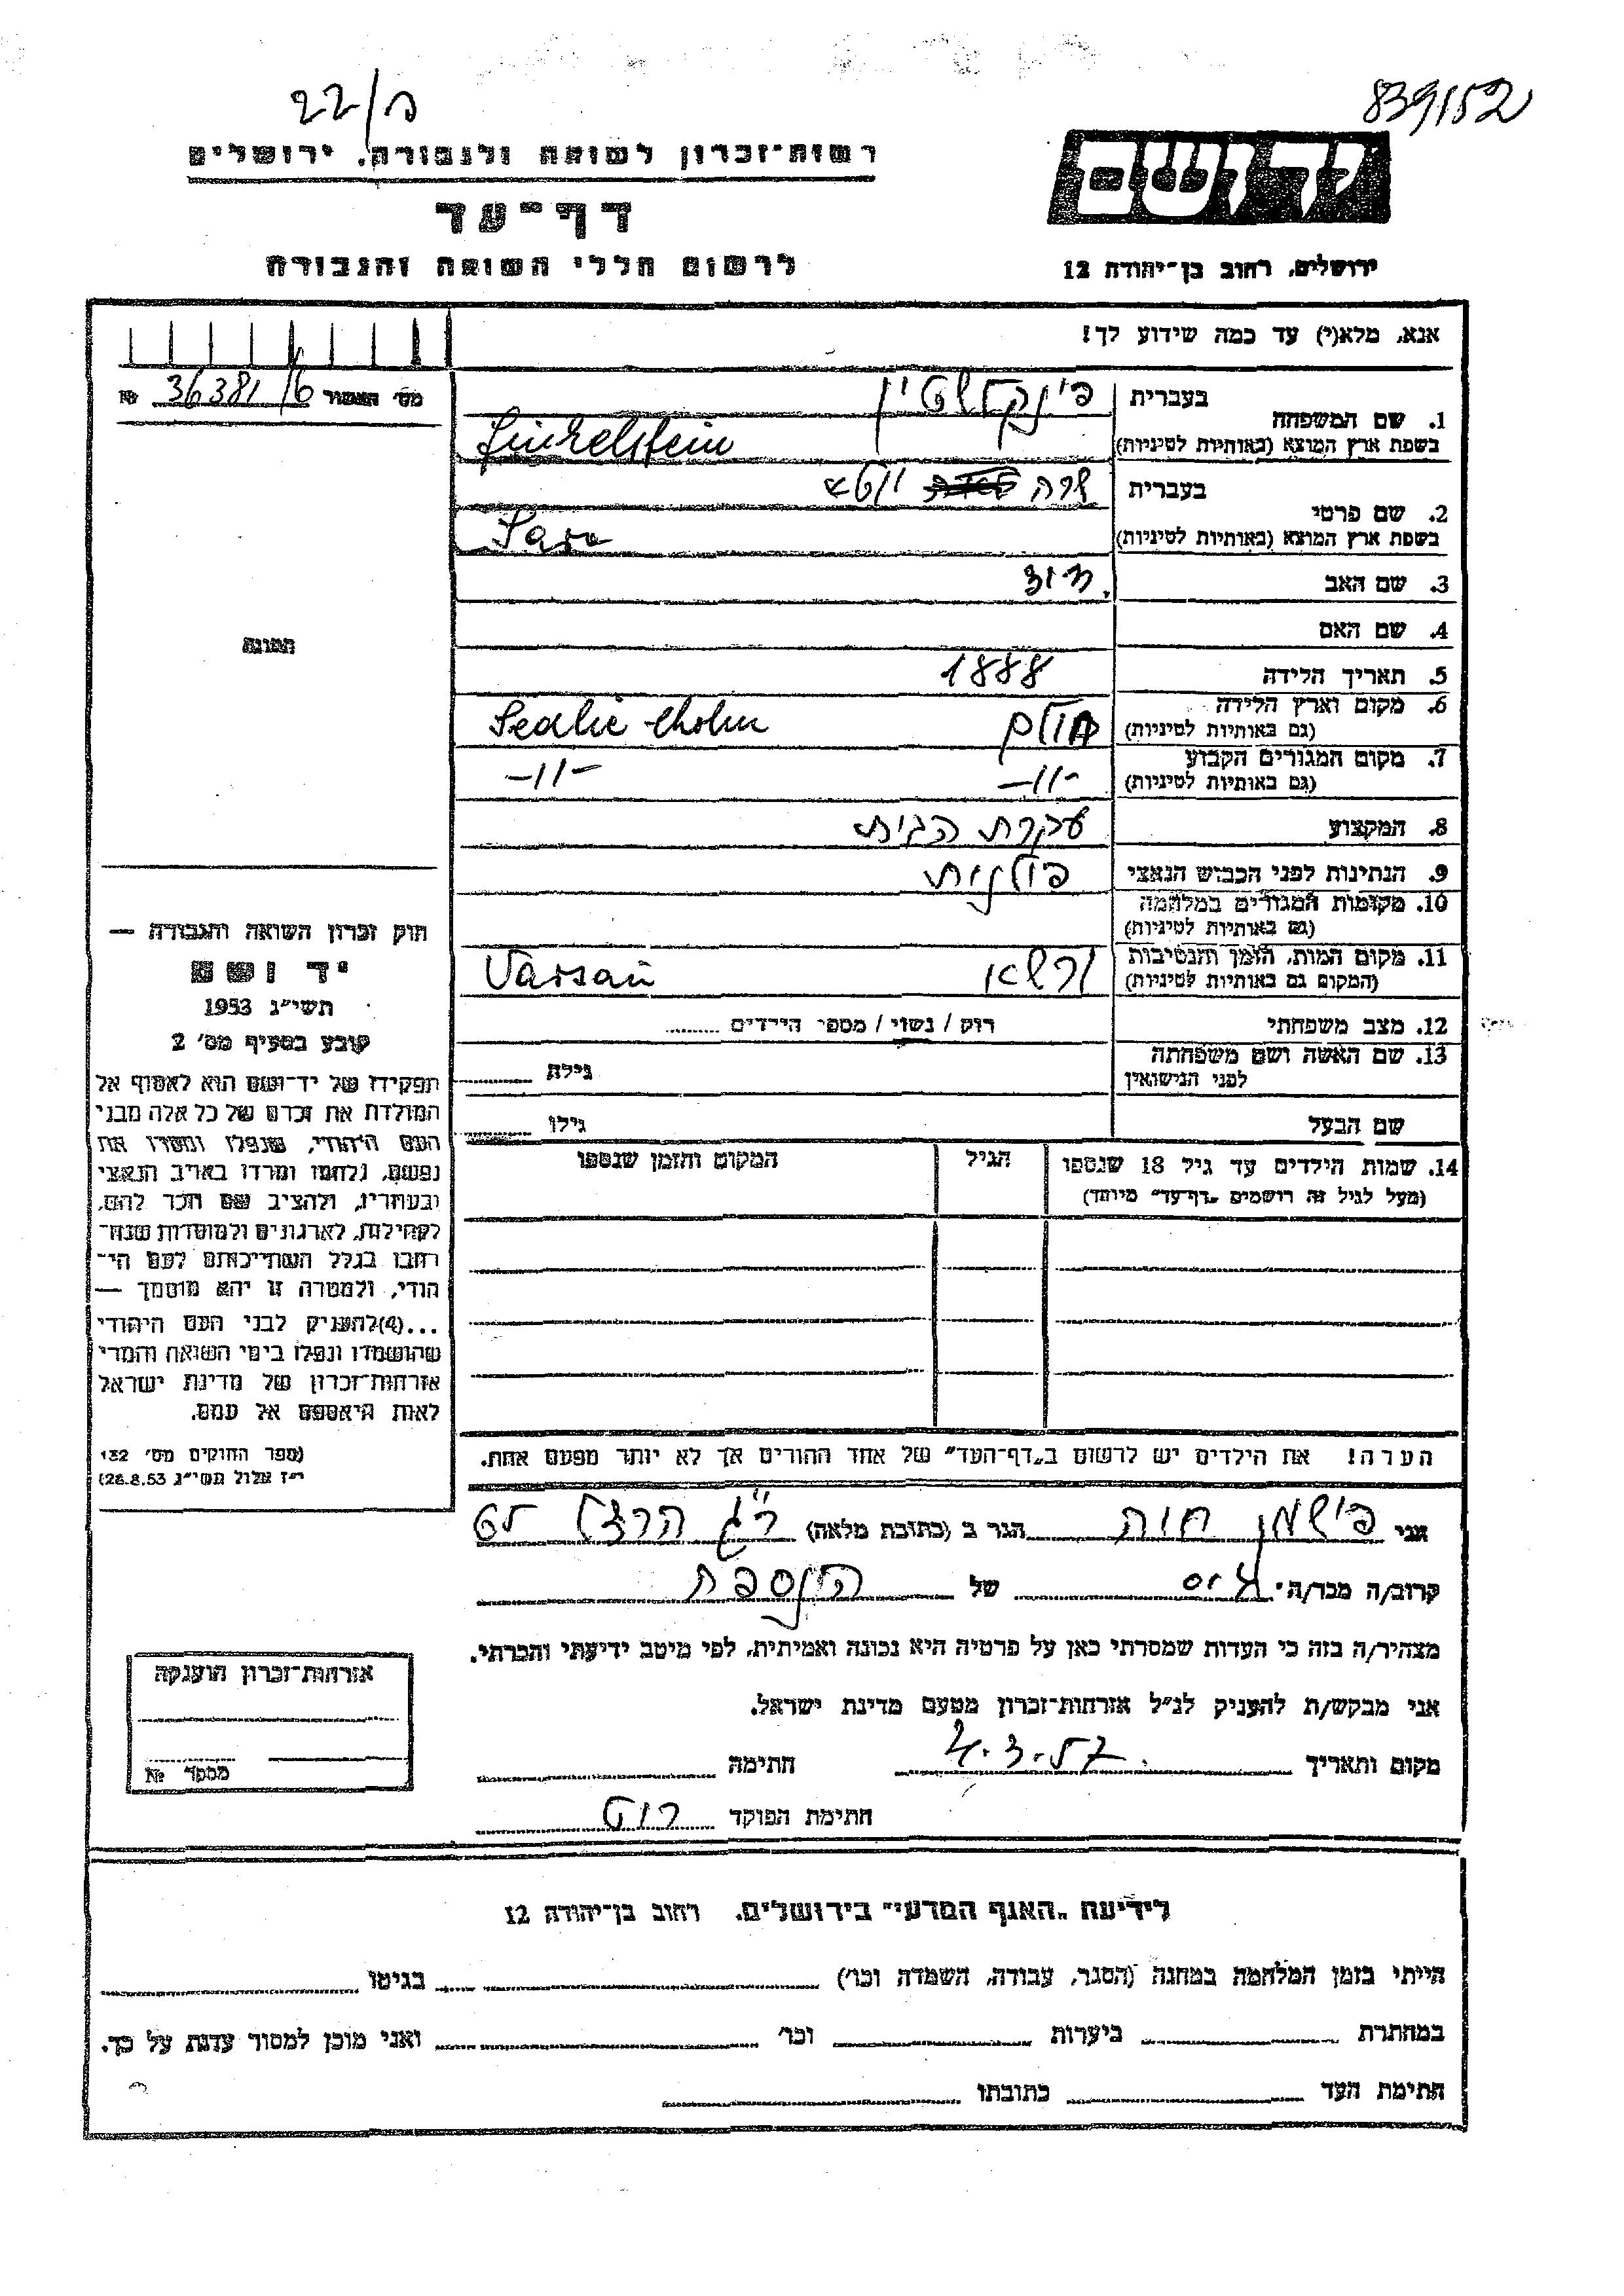 22/פ
839152
רשות-זכרון לשואה ולגבורה, ירושלים
יד ושם
דף-עד
לרשום חללי השואה והגבורה
ירושלים, רחוב בן-יהודה 12
אנא, מלא(י) עד כמה שידוע לך!
מס' האשור 36381/6 №
1. שם המשפחה
בעברית פינקלשטיין
בשפת ארץ המוצא (באותיות לטיניות) Finkelstein
2. שם פרטי
בעברית שרה
בשפת ארץ המוצא (באותיות לטיניות) Sara
3. שם האב
4. שם האם
5. תאריך הלידה 1888
6. מקום וארץ הלידה
(גם באותיות לטיניות) חולם
7. מקום המגורים הקבוע
(גם באותיות לטיניות) -11- -11-
8. המקצוע עקרת הבית
9. הנתינות לפני הכבוש הנאצי פולנית
10. מקומות המגורים במלחמה
(גם באותיות לטיניות)
11. מקום המות, הזמן והנסיבות
(המקום גם באותיות לטיניות) ורשא Varsau
12. מצב משפחתי רוק / נשוי / מספר הילדים
13. שם האשה ושם משפחתה
לפני הנישואין גילה
שם הבעל גילו
14. שמות הילדים עד גיל 18 שנספו הגיל המקום והזמן שנספו
(מעל לגיל זה רושמים „דף-עד" מיוחד)
הערה! את הילדים יש לרשום ב„דף-העד" של אחד ההורים אך לא יותר מפעם אחת.
התמונה
חוק זכרון השואה והגבורה —
יד ושם
תשי"ג 1953
קובע בסעיף מס' 2
תפקידו של יד-ושם הוא לאסוף אל
המולדת את זכרם של כל אלה מבני
העם היהודי, שנפלו ומסרו את
נפשם, נלחמו ומרדו באויב הנאצי
ובעוזריו, ולהציב שם וזכר להם,
לקהילות, לארגונים ולמוסדות שנח-
רבו בגלל השתייכותם לעם הי-
הודי, ולמטרה זו יהא מוסמך —
...(4)להעניק לבני העם היהודי
שהושמדו ונפלו בימי השואה והמרי
אזרחות-זכרון של מדינת ישראל
לאות היאספם אל עמם.
(ספר החוקים מס' 132
י"ז אלול תשי"ג 28.8.53)
אני פישמן חוה הגר ב (כתובת מלאה) ר"ג הרצל 65
קרוב/ה מכר/ה גיס של הנספת
מצהיר/ה בזה כי העדות שמסרתי כאן על פרטיה היא נכונה ואמיתית, לפי מיטב ידיעתי והכרתי.
אני מבקש/ת להעניק לנ"ל אזרחות-זכרון מטעם מדינת ישראל.
מקום ותאריך 4.3.57 חתימה
חתימת הפוקד
אזרחות-זכרון הוענקה
מספר №
לידיעת „האגף המדעי" בירושלים, רחוב בן-יהודה 12
הייתי בזמן המלחמה במחנה (הסגר, עבודה, השמדה וכו') בגיטו
במחתרת ביערות וכו' ואני מוכן למסור עדות על כך.
חתימת העד כתובתו